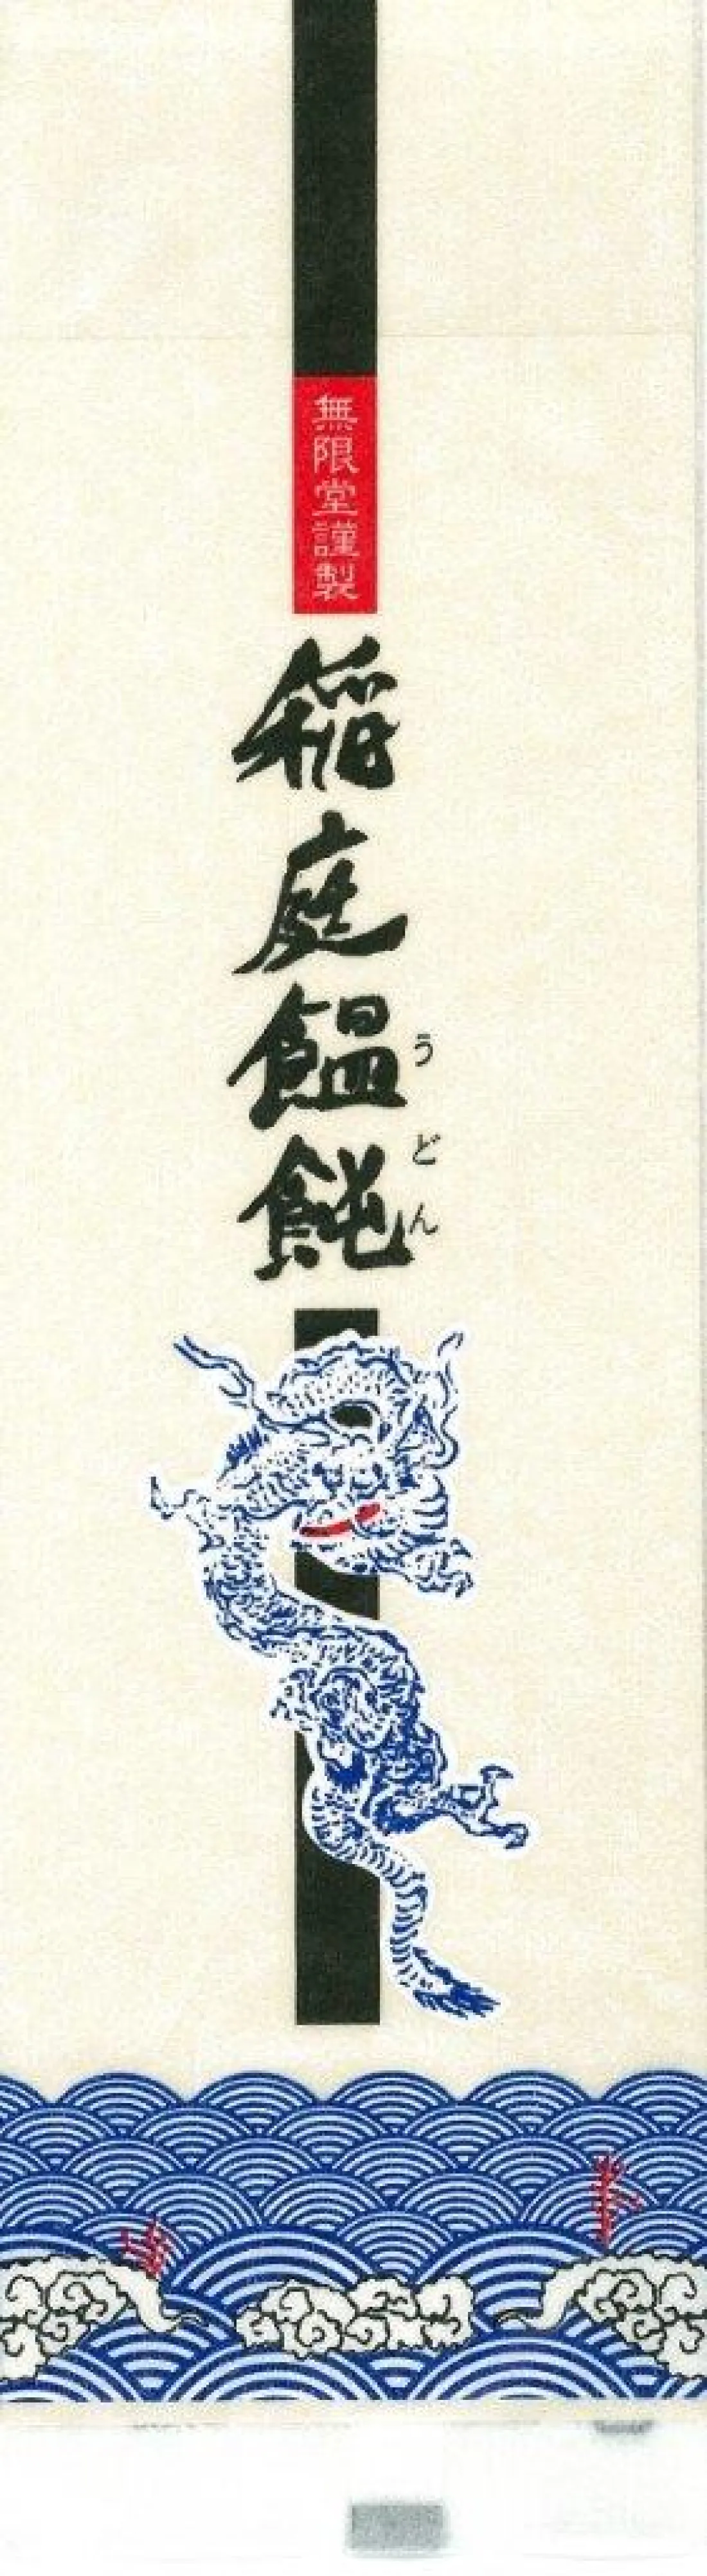 無限堂謹製
稲庭饂飩
うどん